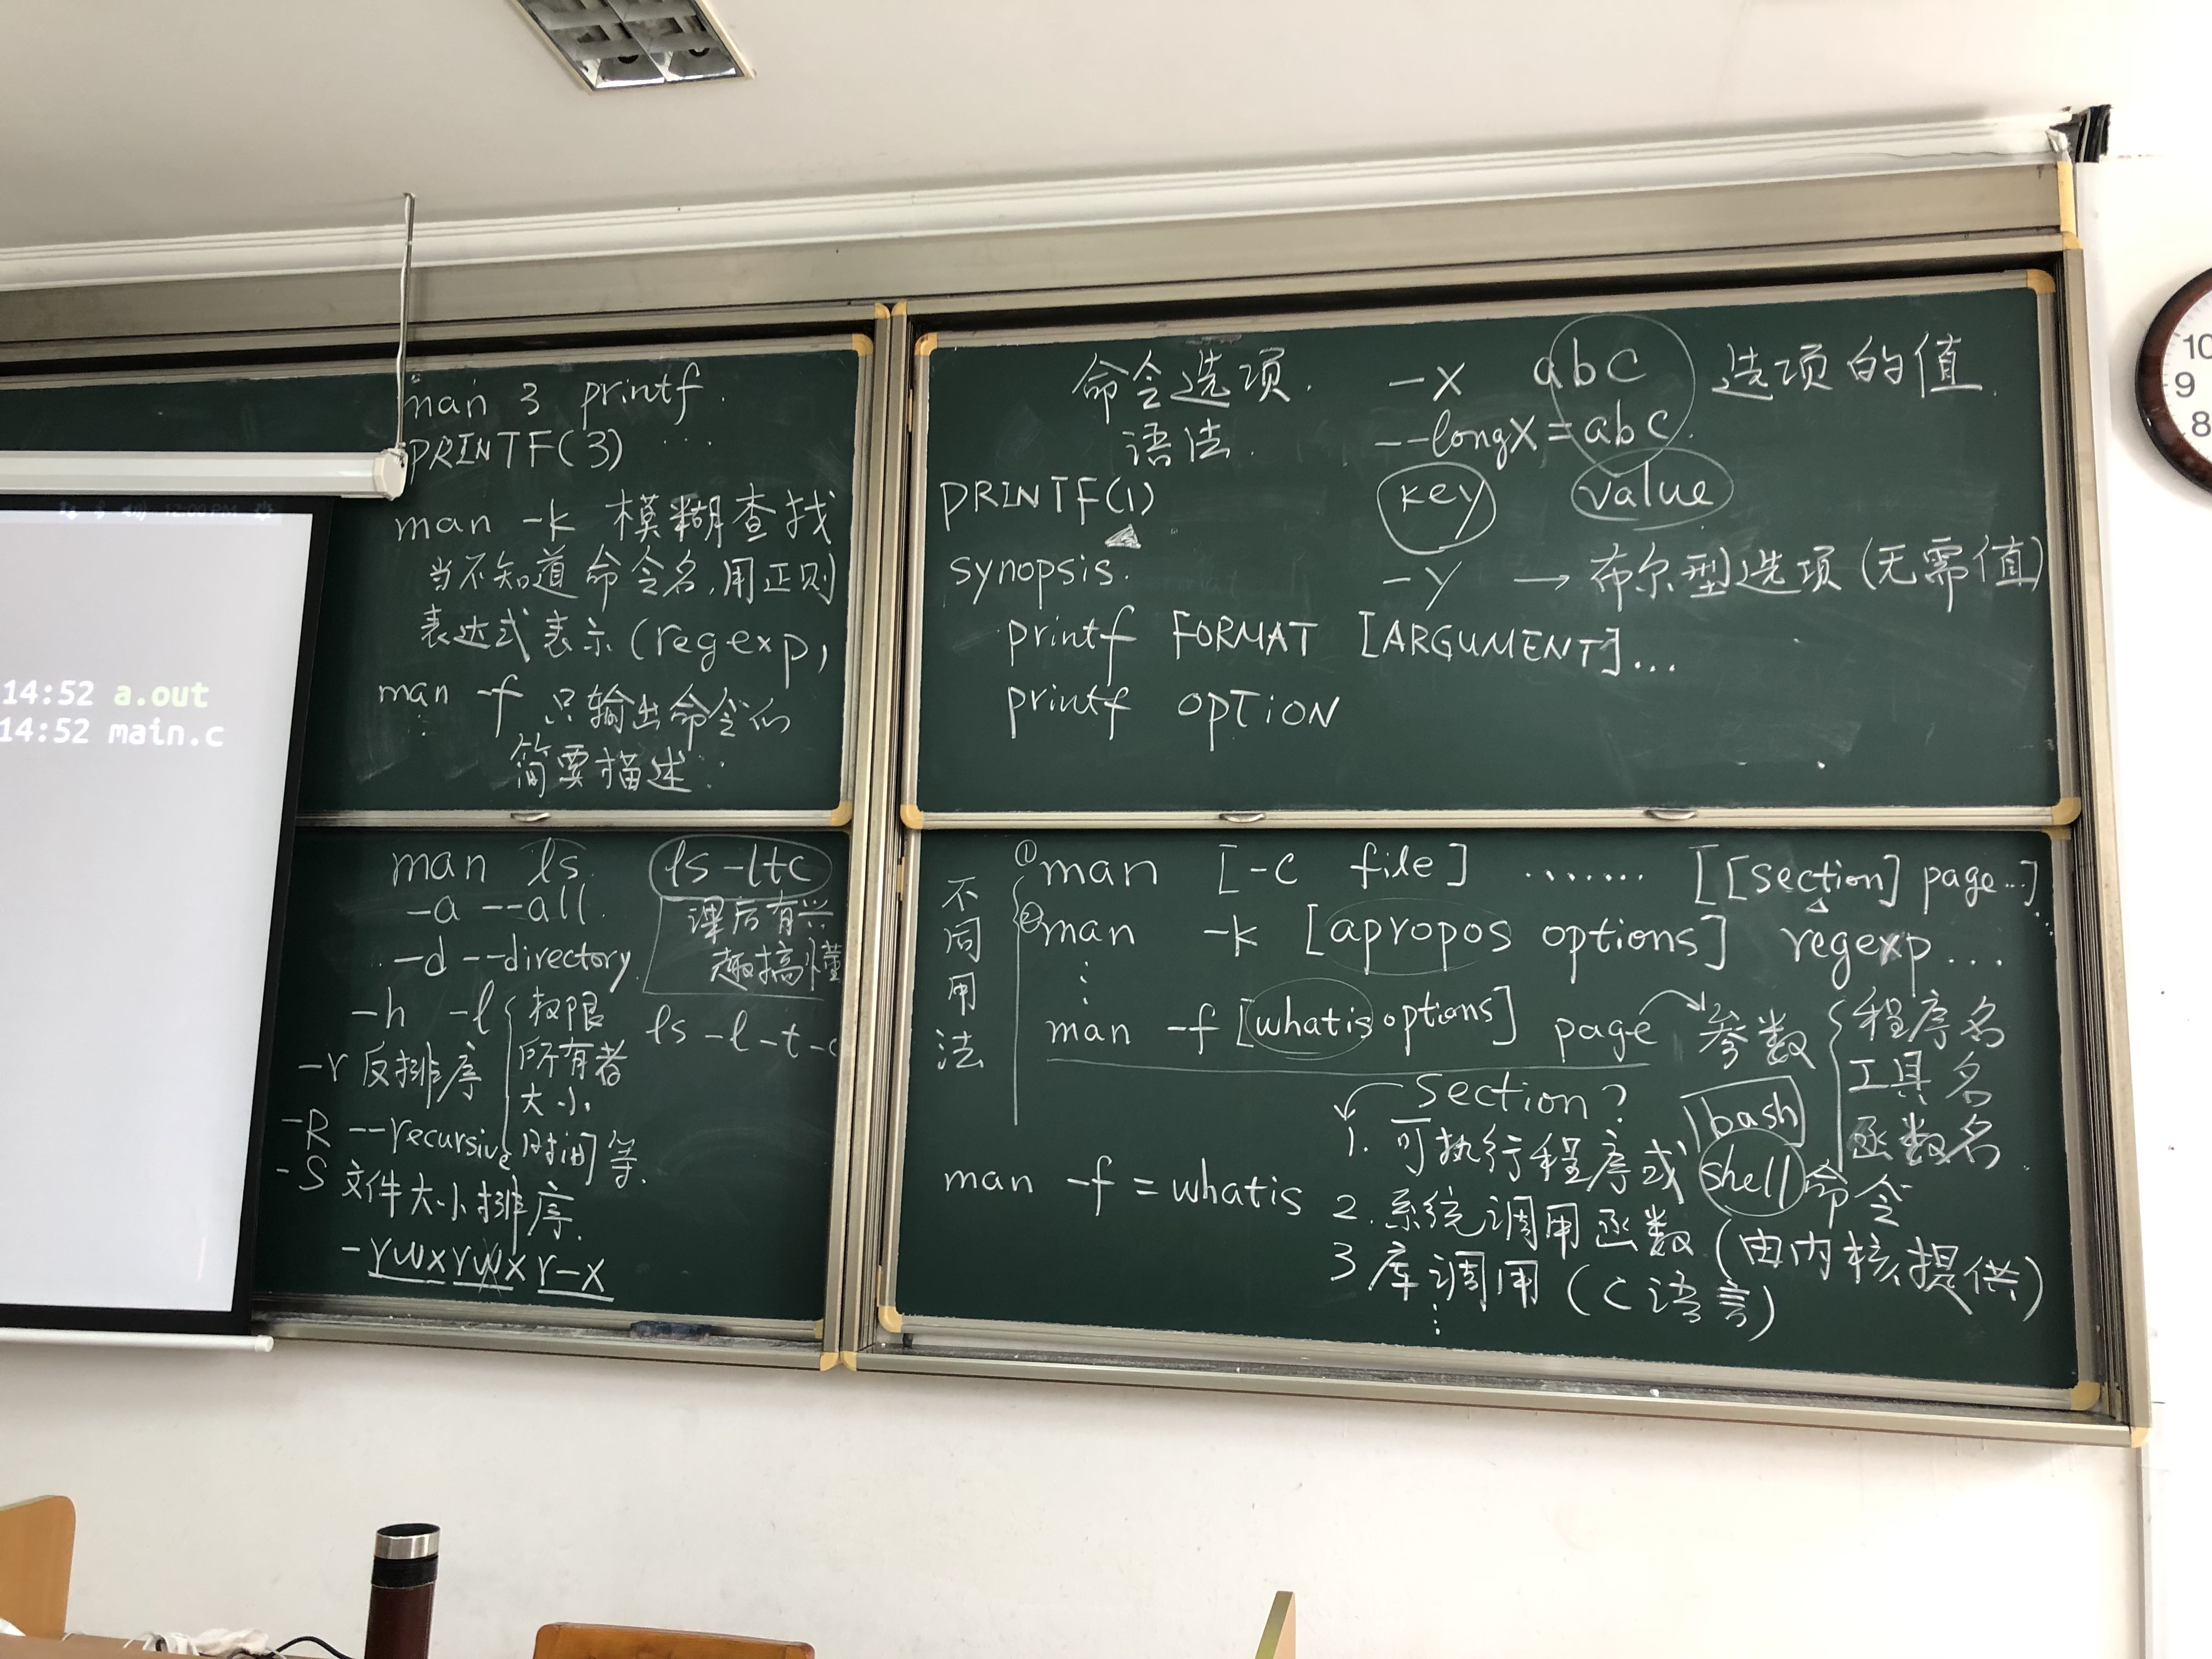 man 3 printf.
PRINTF(3) ...
man -k 模糊查找
当不知道命令名,用正则
表达式表示(regexp,
man -f 只输出命令的
简要描述.
命令选项. -x abc 选项的值.
语法. --longX=abc.
key value
PRINTF(1)
synopsis. -y → 布尔型选项(无需值)
printf FORMAT [ARGUMENT]...
printf OPTION
man ls. ls -ltc
-a --all. 课后有兴
趣搞懂
-d --directory.
-h -l 权限 ls -l -t -c
所有者
-r 反排序 大小
-R --recursive 时间等.
-S 文件大小排序.
-rwxrwxr-x
不同用法
①man [-C file] ....... [[section] page...]
②man -k [apropos options] regexp...
⋮
man -f [whatis options] page 参数 程序名
工具名
函数名.
section?
bash
1. 可执行程序或shell命令
man -f = whatis
2. 系统调用函数(由内核提供)
3 库调用(C语言)
⋮
14:52 a.out
14:52 main.c
10
9
8